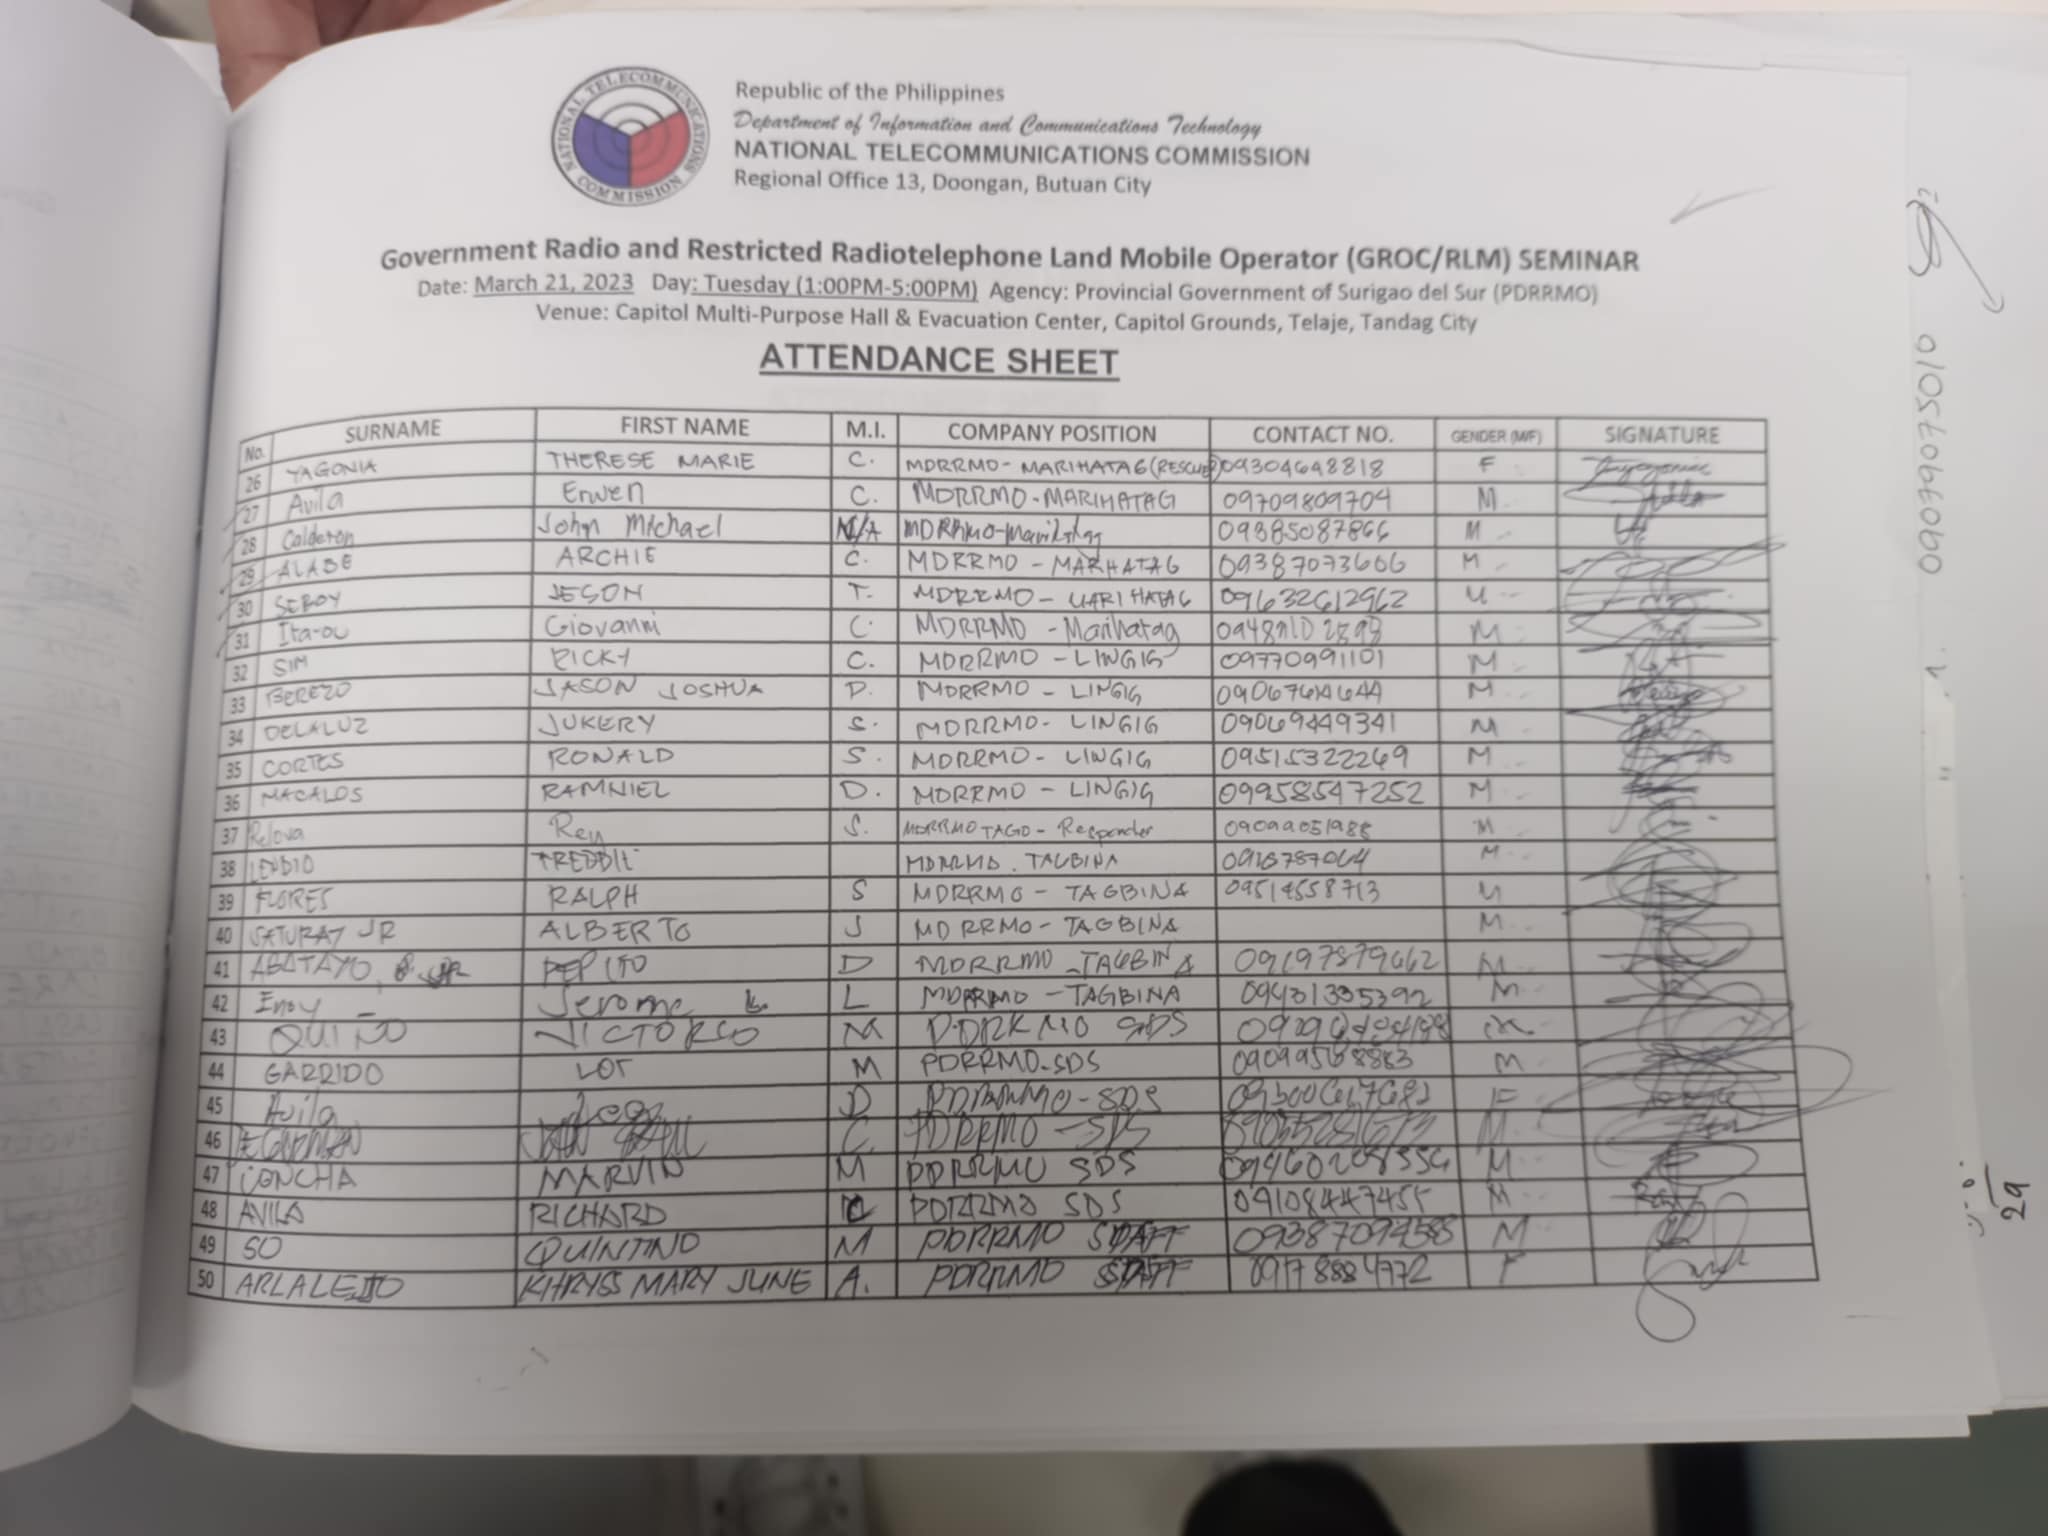 NATIONAL TELECOMMUNICATIONS COMMISSION
Republic of the Philippines
Department of Information and Communications Technology
NATIONAL TELECOMMUNICATIONS COMMISSION
Regional Office 13, Doongan, Butuan City
Government Radio and Restricted Radiotelephone Land Mobile Operator (GROC/RLM) SEMINAR
Date: March 21, 2023 Day: Tuesday (1:00PM-5:00PM) Agency: Provincial Government of Surigao del Sur (PDRRMO)
Venue: Capitol Multi-Purpose Hall & Evacuation Center, Capitol Grounds, Telaje, Tandag City
ATTENDANCE SHEET
No. SURNAME FIRST NAME M.I. COMPANY POSITION CONTACT NO. GENDER (M/F) SIGNATURE
26 YAGONIA THERESE MARIE C. MDRRMO - MARIHATAG (RESCUER) 09304648818 F
27 Avila Erwen C. MDRRMO - MARIHATAG 09709809704 M
28 Calderon John Michael N/A MDRRMO - Marihatag 09385087866 M
29 ALABE ARCHIE C. MDRRMO - MARHATAG 09387073606 M
30 SEROY JESON T. MDRRMO - MARIHATAG 09632612962 M
31 Ita-ou Giovanni C. MDRRMO - Marihatag M
32 SIM RICKY C. MDRRMO - LINGIG 09770991101 M
33 BEREZO JASON JOSHUA D. MDRRMO - LINGIG M
34 DELALUZ JUKERY S. MDRRMO - LINGIG 09069449341 M
35 CORTES RONALD S. MDRRMO - LINGIG 09515322269 M
36 MACALOS RAMNIEL D. MDRRMO - LINGIG 09958547252 M
37 Relova Rey S. MDRRMO TAGO - Responder 09099051988 M
38 LENDIO FREDDIE MDRRMO. TAGBINA M
39 FLORES RALPH S MDRRMO - TAGBINA 09514558713 M
40 SATURAY JR ALBERTO J MDRRMO - TAGBINA M
41 ABATAYO, JR PEPITO D MDRRMO - TAGBINA M
42 Enoy Jerome L MDRRMO - TAGBINA 09431335392 M
43 QUINO VICTORCO M PDRRMO SDS M
44 GARRIDO LOT M PDRRMO-SDS 09099568883 M
45 Avila D PDRRMO - SDS F
46 C. PDRRMO - SDS M
47 CONCHA MARVIN M PDRRMO SDS 09460208354 M
48 AVILA RICHARD PDRRMO SDS 09108447455 M
49 SO QUINTINO M PDRRMO STAFF 09387094588 M
50 ARLALEJO KHRYSS MARY JUNE A. PDRRMO STAFF 09178884772 F
09079975010
29